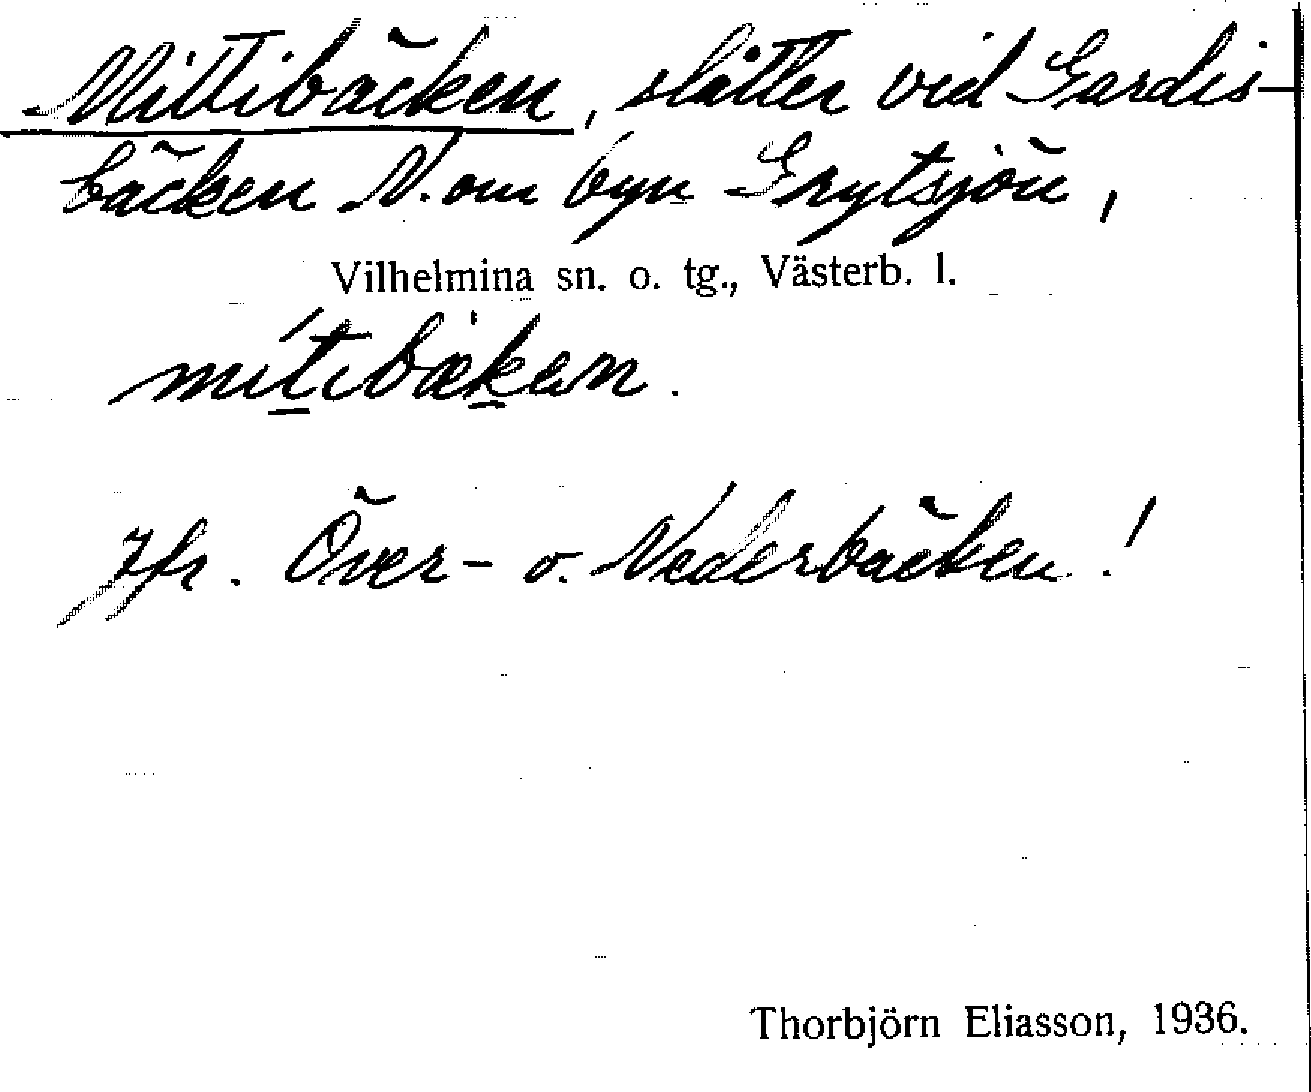 Mittibäcken, slåtter vid Gardis-
bäcken N. om byn Grytsjön,
Vilhelmina sn. o. tg., Västerb. l.
mítibækæn.
Jfr. Över- o. Nederbäcken!
Thorbjörn Eliasson, 1936.